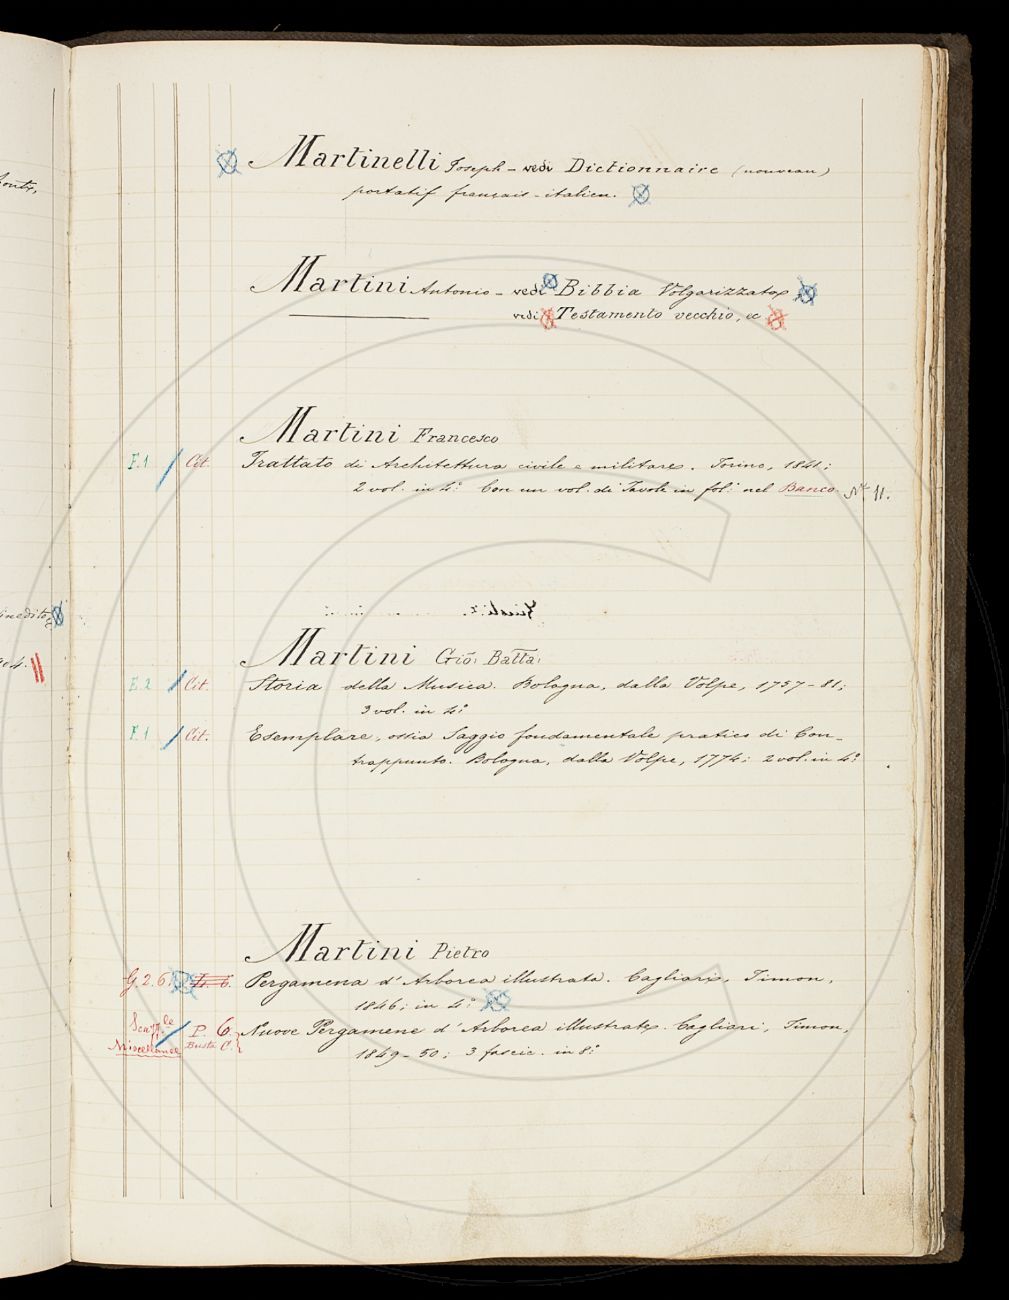 onti,
Martinelli Joseph - vedi Dictionnaire (nouveau)
portatif français-italien.
Martini Antonio - vedi Bibbia Volgarizzata
vedi Testamento vecchio, ec
Martini Francesco
F.1 Cit. Trattato di Architettura civile e militare. Torino, 1841;
2 vol. in 4.° Con un vol. di Tavole in fol.° nel Banco N° 11.
inedito
904.
Martini Gio: Batta:
E.2 Cit. Storia della Musica. Bologna, dalla Volpe, 1757-81;
3 vol. in 4.°
F.1 Cit. Esemplare, ossia Saggio fondamentale pratico di Con-
trappunto. Bologna, dalla Volpe, 1774; 2 vol. in 4.°
Martini Pietro
G.2.6. Pergamena d'Arborea illustrata. Cagliari, Timon,
1846; in 4.°
Scaff.le P. 6. Nuove Pergamene d'Arborea illustrate. Cagliari, Timon,
Miscellanee Busta C. 1849-50; 3 fascic. in 8.°